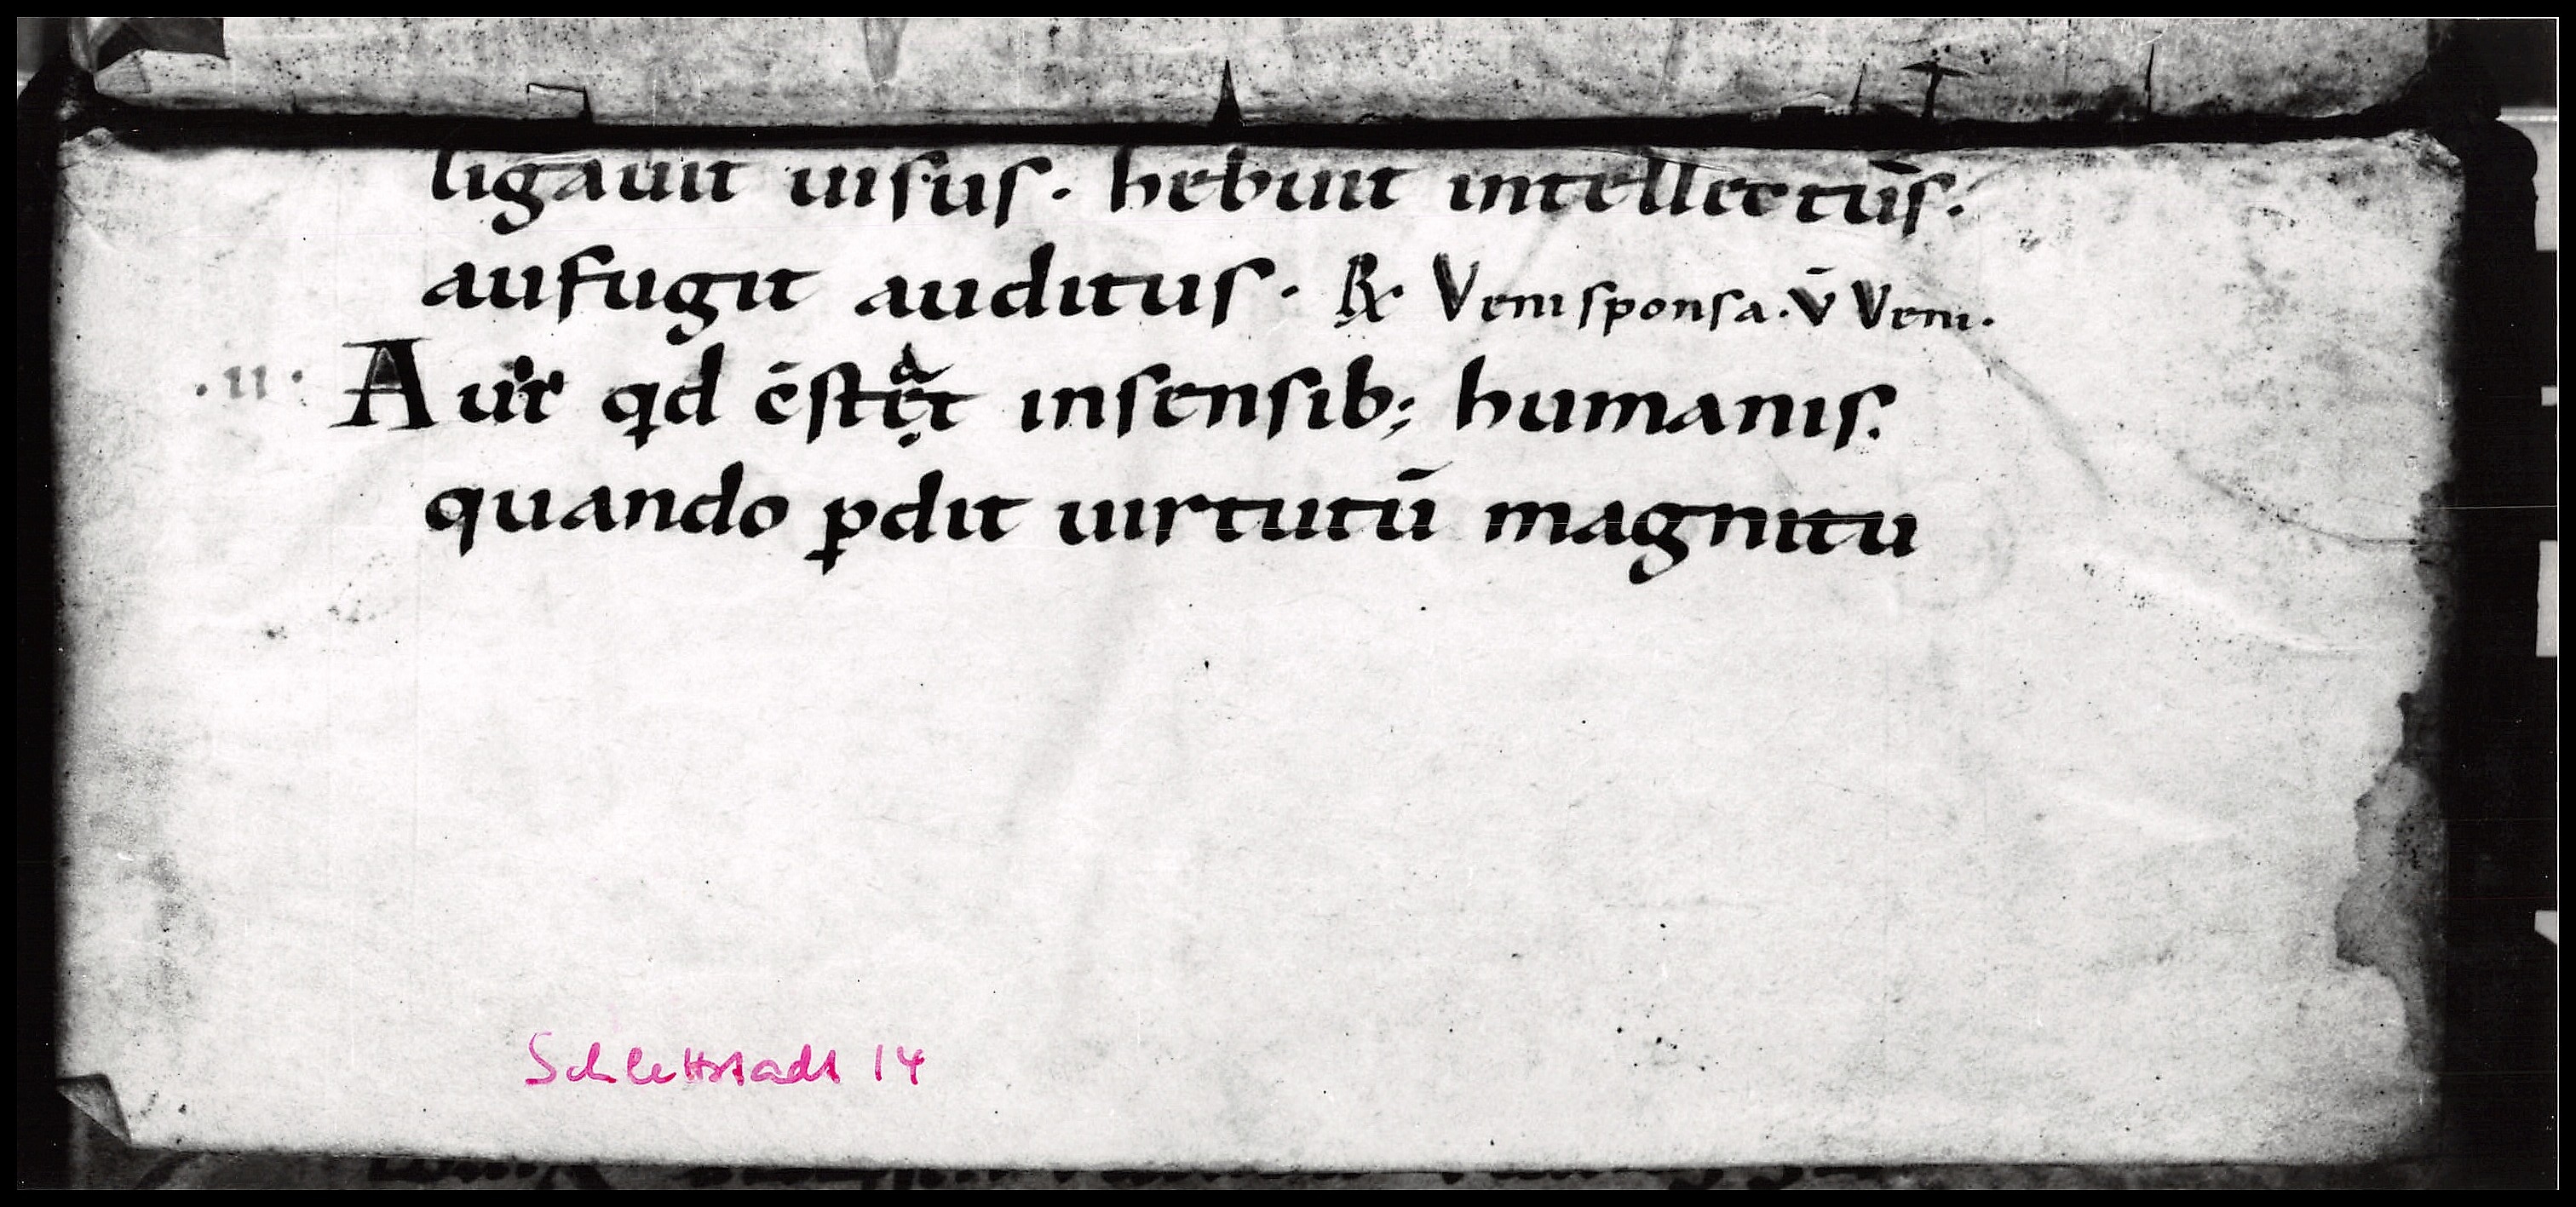 ligauit uisus. hebuit intellectus.
aufugit auditus. R. Veni sponsa. v̄ Veni.
.II. Aut qd ēstet insensib; humanis.
quando ꝑdit uirtutū magnitu
Schlettstadt 14